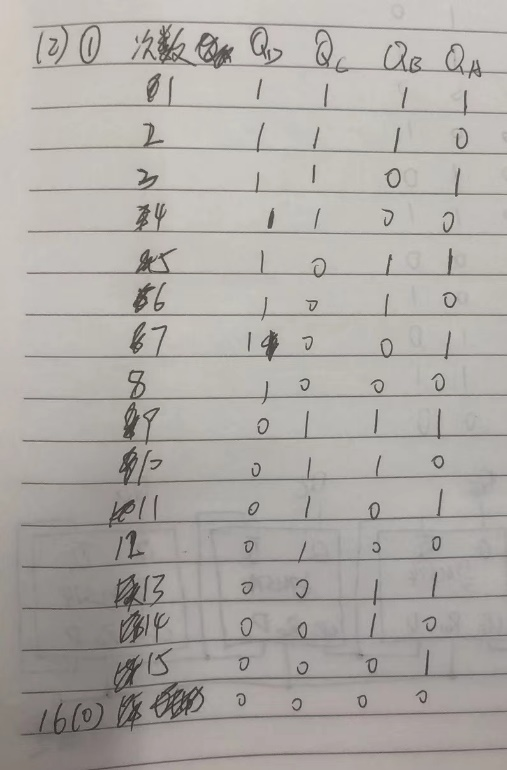 (2) ① 次数 Q_D Q_C Q_B Q_A
1 1 1 1 1
2 1 1 1 0
3 1 1 0 1
4 1 1 0 0
5 1 0 1 1
6 1 0 1 0
7 1 0 0 1
8 1 0 0 0
9 0 1 1 1
10 0 1 1 0
11 0 1 0 1
12 0 1 0 0
13 0 0 1 1
14 0 0 1 0
15 0 0 0 1
16(0) 0 0 0 0